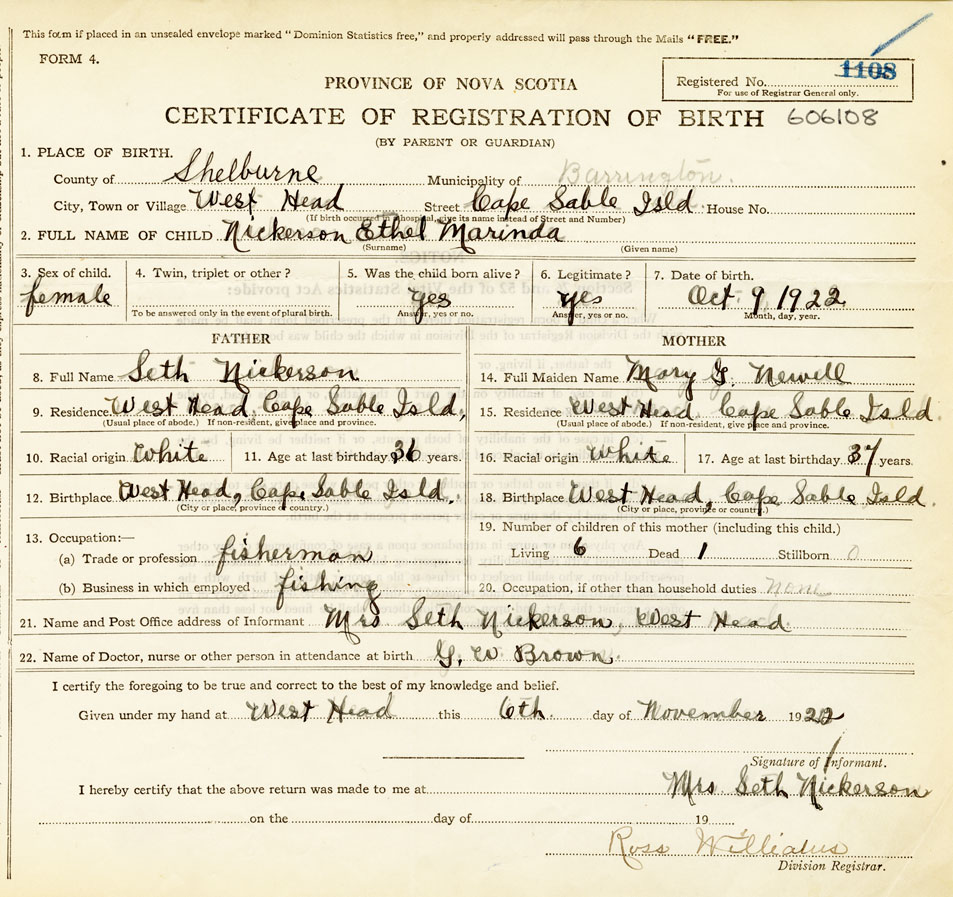 This form if placed in an unsealed envelope marked "Dominion Statistics free," and properly addressed will pass through the Mails "FREE."
FORM 4.
Registered No. 1108
For use of Registrar General only.
PROVINCE OF NOVA SCOTIA
CERTIFICATE OF REGISTRATION OF BIRTH 606108
(BY PARENT OR GUARDIAN)
1. PLACE OF BIRTH.
County of Shelburne Municipality of Barrington.
City, Town or Village West Head Street Cape Sable Isld. House No.
(If birth occurred in a hospital, give its name instead of Street and Number)
2. FULL NAME OF CHILD Nickerson Ethel Marinda
(Surname) (Given name)
3. Sex of child. 4. Twin, triplet or other? 5. Was the child born alive? 6. Legitimate? 7. Date of birth.
female yes yes Oct 9 1922
To be answered only in the event of plural birth. Answer, yes or no. Answer, yes or no. Month, day, year.
FATHER MOTHER
8. Full Name Seth Nickerson 14. Full Maiden Name Mary G. Newell
9. Residence West Head, Cape Sable Isld, 15. Residence West Head Cape Sable Isld.
(Usual place of abode.) If non-resident, give place and province. (Usual place of abode.) If non-resident, give place and province.
10. Racial origin White 11. Age at last birthday 36 years. 16. Racial origin White 17. Age at last birthday 37 years.
12. Birthplace West Head, Cape Sable Isld. 18. Birthplace West Head, Cape Sable Isld.
(City or place, province or country.) (City or place, province or country.)
13. Occupation:— 19. Number of children of this mother (including this child.)
(a) Trade or profession fisherman Living 6 Dead 1 Stillborn 0
(b) Business in which employed fishing 20. Occupation, if other than household duties none
21. Name and Post Office address of Informant Mrs Seth Nickerson, West Head
22. Name of Doctor, nurse or other person in attendance at birth G. W Brown.
I certify the foregoing to be true and correct to the best of my knowledge and belief.
Given under my hand at West Head this 6th. day of November 1922
Signature of Informant.
I hereby certify that the above return was made to me at Mrs Seth Nickerson
on the day of 19
Ross Williams
Division Registrar.